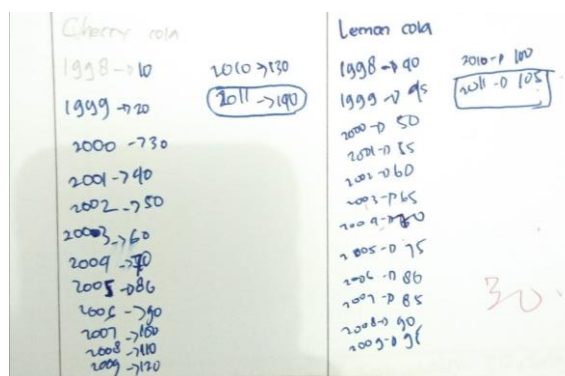 Cherry cola
1998 → 10
1999 → 20
2000 → 30
2001 → 40
2002 → 50
2003 → 60
2004 → 70
2005 → 80
2006 → 90
2007 → 100
2008 → 110
2009 → 120
2010 → 130
2011 → 140
Lemon cola
1998 → 40
1999 → 45
2000 → 50
2001 → 55
2002 → 60
2003 → 65
2004 → 70
2005 → 75
2006 → 80
2007 → 85
2008 → 90
2009 → 95
2010 → 100
2011 → 105
30.